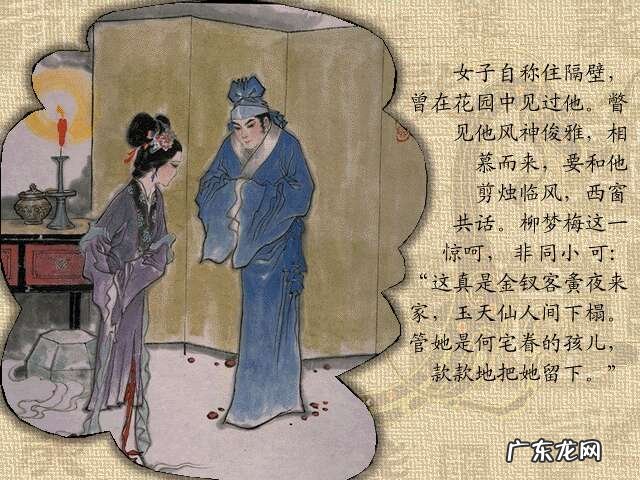 女子自称住隔壁，
曾在花园中见过他。瞥
见他风神俊雅，相
慕而来，要和他
剪烛临风，西窗
共话。柳梦梅这一
惊呵，非同小可：
“这真是金钗客夤夜来
家，玉天仙人间下榻。
管她是何宅眷的孩儿，
款款地把她留下。”
广东龙网